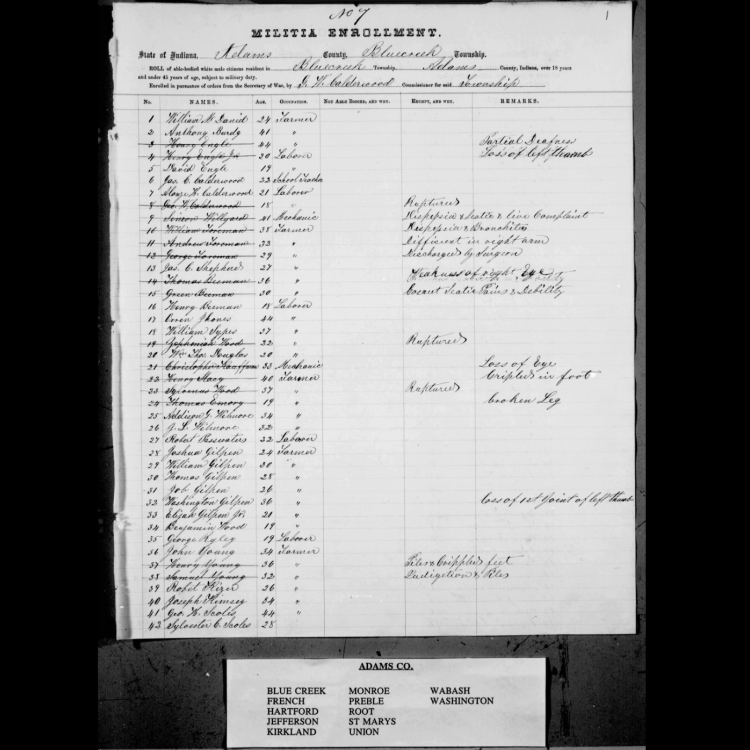 No 7
1
MILITIA ENROLLMENT.
State of Indiana, Adams County, Bluecreek Township.
ROLL of able-bodied white male citizens resident in Bluecreek Township, Adams County, Indiana, over 18 years
and under 45 years of age, subject to military duty.
Enrolled in pursuance of orders from the Secretary of War, by G. W. Calderwood Commissioner for said Township
No. NAMES. Age. Occupation. Not Able Bodied, and why. Exempt, and why. REMARKS.
1 William McDavid 24 Farmer
2 Anthony Burdg 41 "
3 Henry Engle 44 " Partial Deafness
4 Henry Engle Jr 20 Laborer Loss of left thumb
5 David Engle 19 "
6 Jas. C. Calderwood 22 School Teacher
7 W. Calderwood 21 Laborer
8 Geo. W. Calderwood 18 " Ruptured
9 Simeon Hillyard 41 Mechanic Dispepsia & & live Complaint
10 William Foreman 38 Farmer Dispepsia & Bronchitis
11 Andrew Foreman 32 " Difficient in right arm
12 George Foreman 29 " Discharged by Surgeon
13 Jas. C. Shepherd 27 "
14 Thomas Beeman 36 " Weakness of right Eye
15 Green Beeman 30 " Pains & Debility
16 Henry Beeman 18 Laborer
17 Orren 44 "
18 William Sypes 37 "
19 Jephemiah Wood 22 " Ruptured
20 Wm Thos. Douglas 20 "
21 Christopher 33 Mechanic Loss of Eye
22 Henry Stacy 40 Farmer Cripled in foot
23 Wood 37 " Ruptured
24 Thomas Emory 19 " broken Leg
25 Addison G. Wilmore 34 "
26 J. L. Wilmore 32 "
27 Robert Passwaters 22 Laborer
28 Joshua Gilpen 24 Farmer
29 William Gilpen 30 "
30 Thomas Gilpen 28 "
31 Job Gilpen 26 "
32 Washington Gilpen 36 " loss of 1st Joint of left thumb
33 Elijah Gilpen Jr. 21 "
34 Benjamin Wood 19 "
35 George 19 Laborer
36 John Young 34 Farmer
37 Henry Young 36 " Piles & Crippled feet
38 Samuel Young 32 " Indigetion & Piles
39 Robt Kizer 26 "
40 Joseph Kimsey 34 "
41 Geo. W. Scoles 44 "
42 Sylvester C. Scoles 28
ADAMS CO.
BLUE CREEK MONROE WABASH
FRENCH PREBLE WASHINGTON
HARTFORD ROOT
JEFFERSON ST MARYS
KIRKLAND UNION